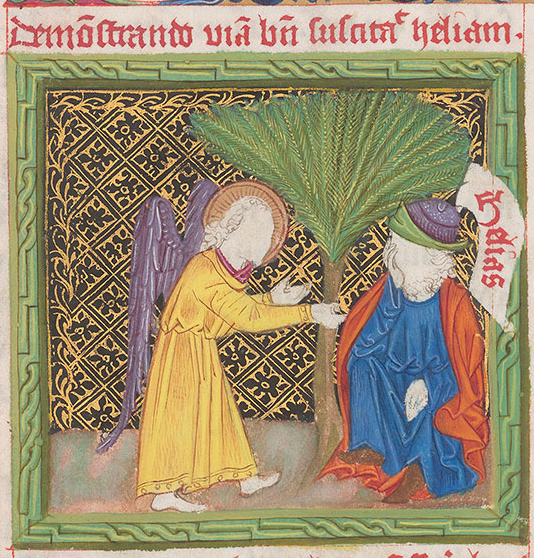 Demõstrando viã bñ suscitat heliam.
Helyas